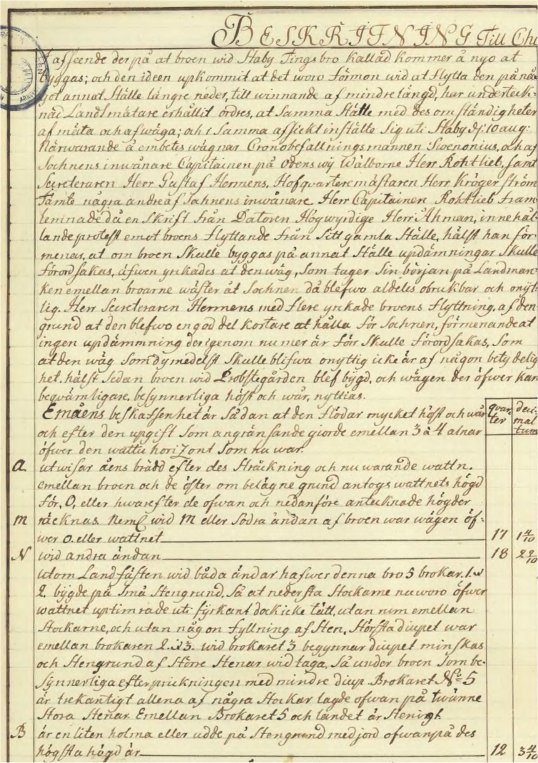 BESKRIFNING Till Cha
I afseende der på at broen wid Staby Tings bro kallad kommer å nyo at
byggas; och den ideen upkommit at det woro förmon wid at flytta den på nå-
got annat Ställe längre neder, till winnande af mindre längd, har underteck-
nad Landtmätare erhållit ordres, at Samma Ställe med des omständigheter
afmäta och afwäga; och i Samma afsickt instälte Sig uti Staby d: 10 aug:
Närwarande å embetswägnar Cronobefallningsmannen Swenonius, och af
Sochnens inwånare Capitainen på Odenswij Wälborne Herr Rohtlieb, samt
Secreteraren Herr Gustaf Hermens, Hofquartermästaren Herr Krögerström
Jämte några andre af Sochnens inwånare. Herr Capitainen Rohtlieb fram
lemnade då en Skrift från Pastoren Högwyrdige Herr Åhman, innehål-
lande protest emot broens flyttande från Sitt gamla Ställe, hälst han för-
menar, at om broen Skulle byggas på annat Ställe updämningar Skulle
förordsakas, äfwen ynkades at den wäg, Som tager Sin början på Landswä-
gen emellan broarne wäster åt Sochnen då blefwo aldelis obrukbar och onyt-
lig. Herr Secreteraren Hermens med flere ynkade broens flyttning, af den
grund at den blefwo en god del kortare at hålla för Sochnen, förmenande at
ingen updämmning derigenom nu mer än för Skulle förordsakas, Som
at den wäg Som dymedelst Skulle blifwa onyttig icke är af någon betydelig
het, hälst Sedan broen wid Probstegården blef bygd, och wägen der öfwer kan
beqwämligare, besynnerliga höst och wår, nyttias.
Emåens beskaffenhet är Sådan at den flödar mycket höst och wår
och efter den upgift Som angränsande giorde emellan 3 à 4 alnar
öfwer den wattu horizont Som nu war.
qvar-
ter
deci-
mal
tum
a utwisar åens brädd efter des Sträckning och nuwarande wattn.
emellan broen och de öfter om belägne grund antogs wattnets högd
för, 0, eller hwarefter de ofwan och nedanföre anteknade högder
m räcknas. Neml wid M eller Södra ändan af broen war wägen öf-
wer 0. eller wattnet 17 1 4/10
N wid andra ändan 18 2 2/10
utom Landfästen wid båda ändar hafwer denna bro 5 brokar. 1. och
2 bygde på Små Stengrund, Så at nedersta Stockarne nu woro öfwer
wattnet uptimrade uti fyrkant dock icke tätt, utan rum emellan
Stockarne, och utan någon fyllning af Sten. Största diupet war
emellan brokaren 2 och 3. wid brokaret 3 begynnar diupet minskas
och Stengrund af Större Stenar wid taga, Så under broen Som be-
synnerliga efter prickningen med mindre diup. Brokaret No 5
är trekantigt allena af några Stockar lagde ofwan på twänne
Stora Stenar. Emellan Brokaret 5 och landet är Stenigt
B är en liten holma eller udde på Stengrund med jord ofwanpå des
högsta högd är 12 3 4/10